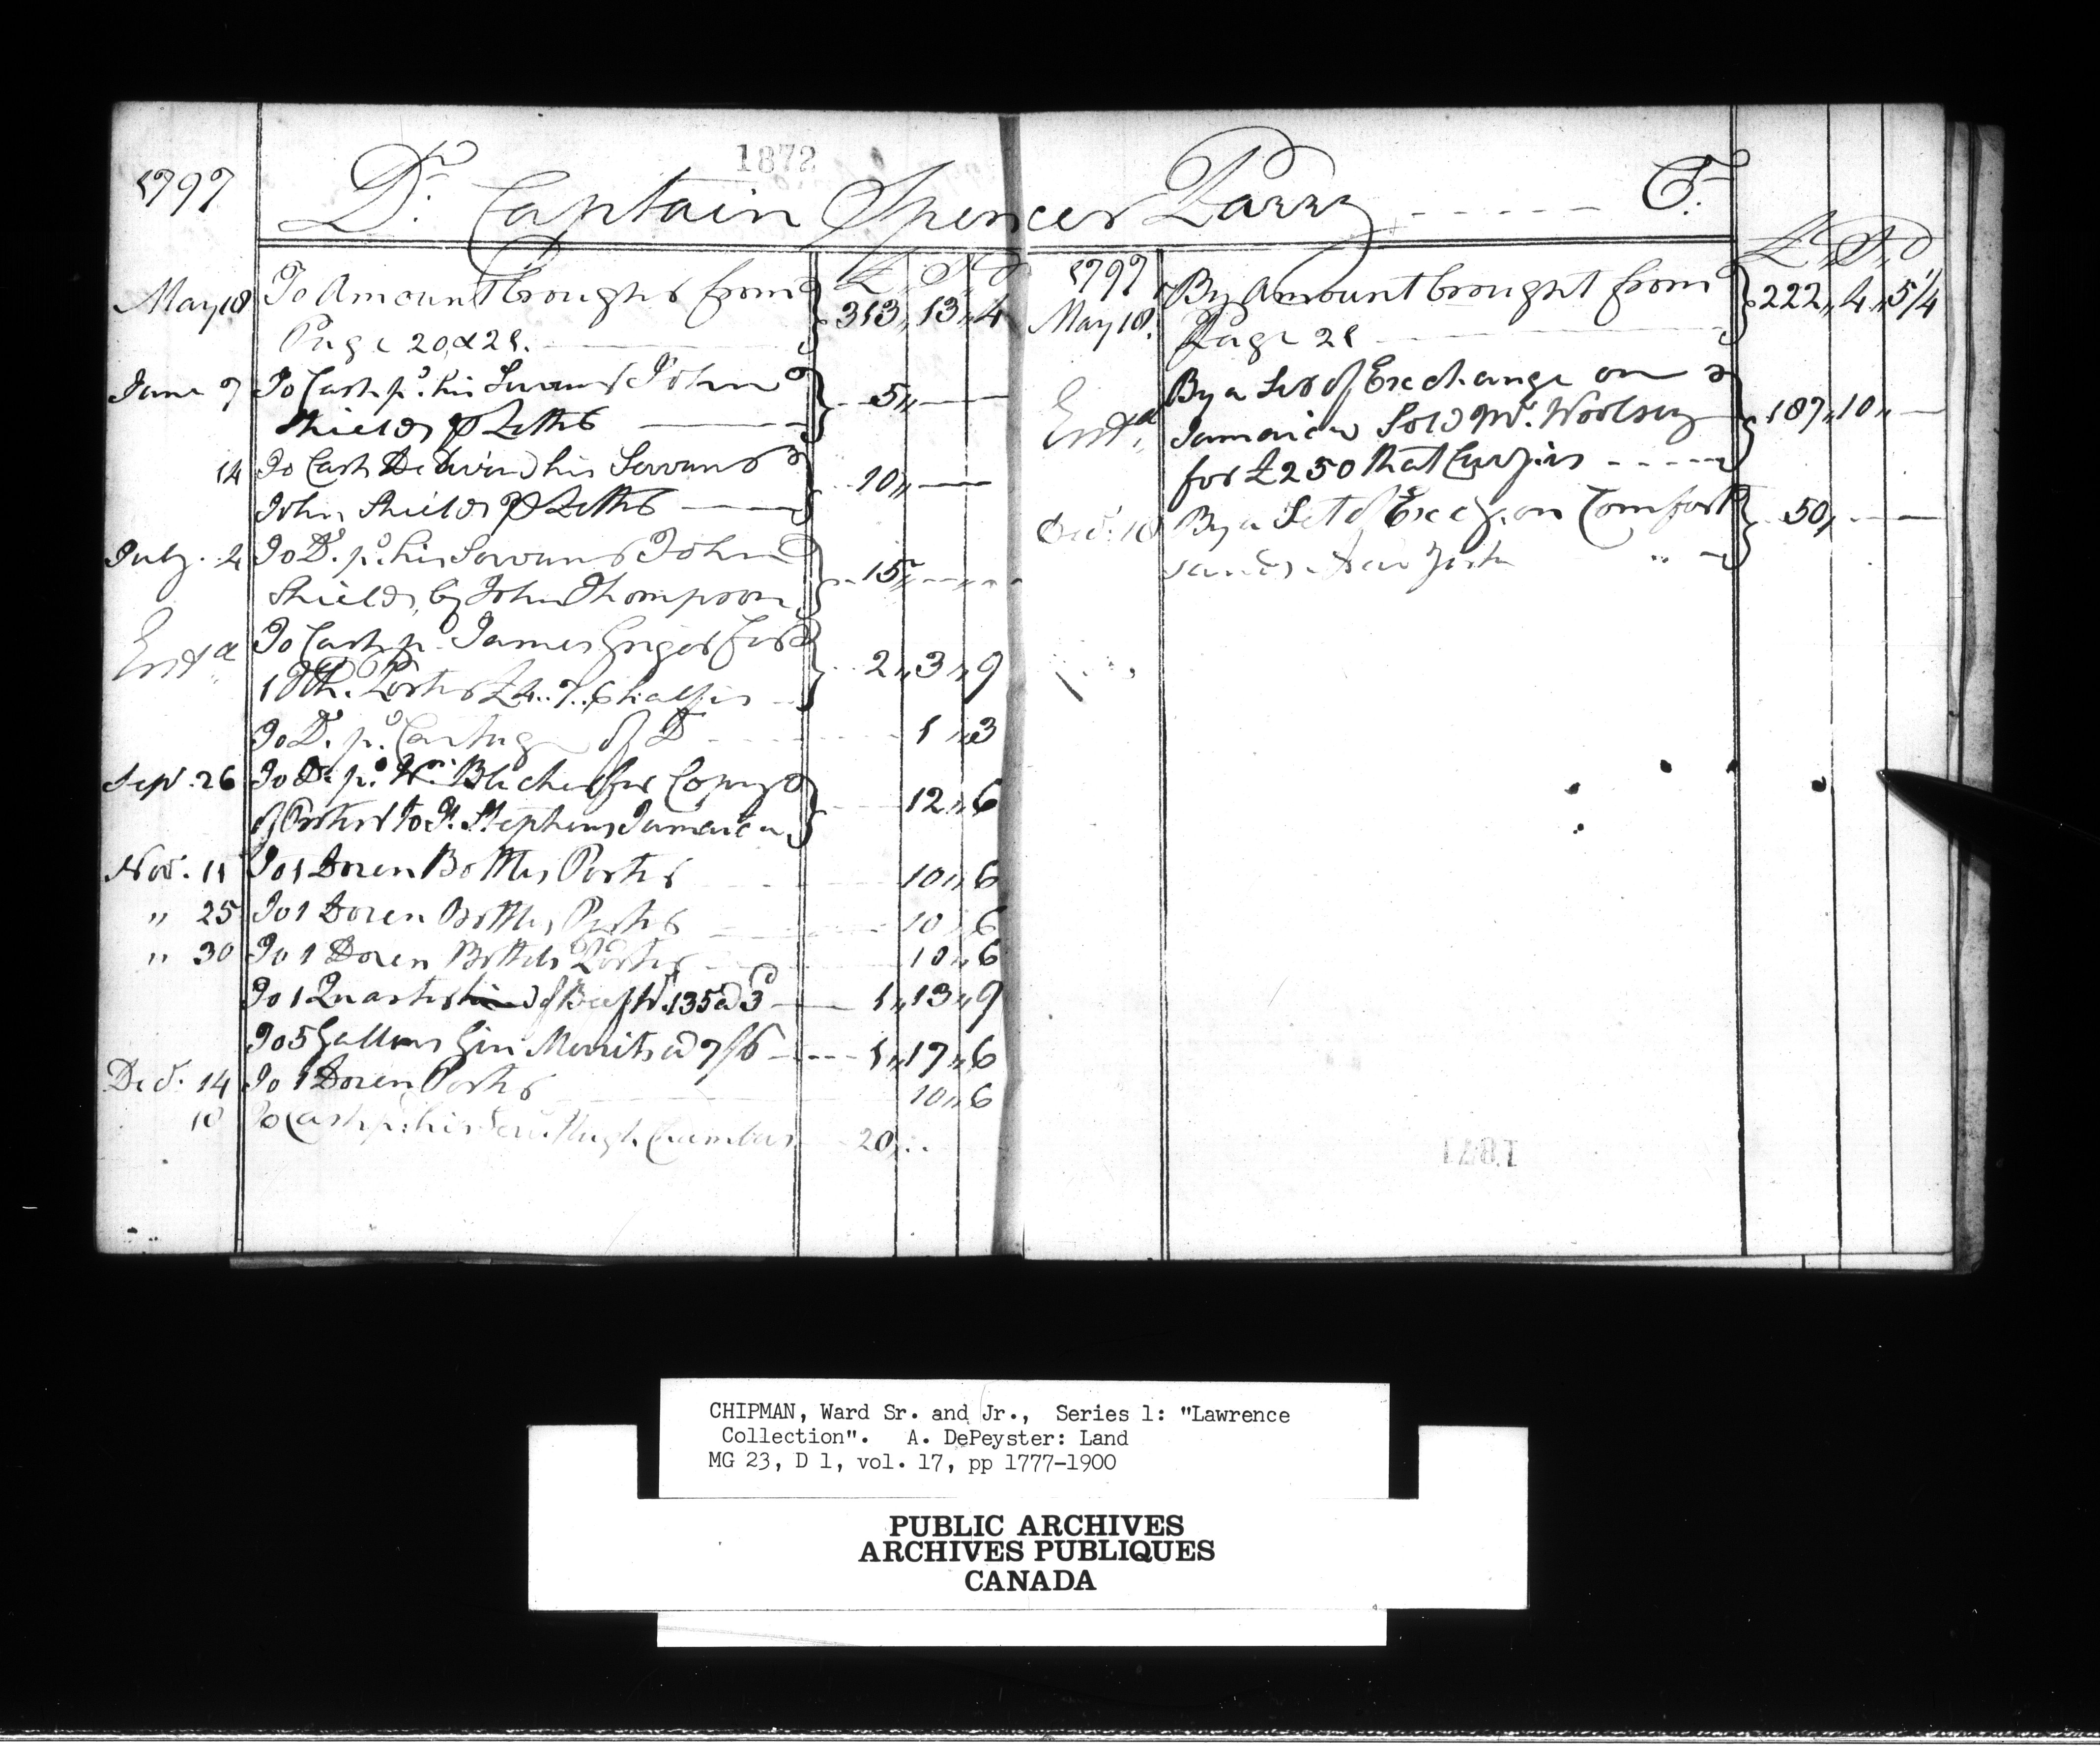 1872
1797
Dr. Captain Spencer Parry - - - - - Cr.
£ S D
May 18 To Amount brought from
Page 20 & 21. 313 " 13 " 4
June 7 To Cash pd. his Servant John
Shields p Letter 5 " —
14 To Cash Delivered his Servant
John Shields p Letter 10 " —
July 2 To Do. pd. his Servant John
Shields, by John Thompson 15 "
Entd. To Cash pd. James Griger for
Porter £4..7..6 half is 2 " 3 " 9
To Do. pd. Cartage of Do 1 " 3
Sepr. 26 To Do. pd. Wm. for Copys
of to St. Stephens Jamaica 12 " 6
Nov. 11 To 1 Dozen Bottles Porter 10 " 6
" 25 To 1 Dozen Bottles Porter 10 " 6
" 30 To 1 Dozen Bottels Porter 10 " 6
To 1 Quarter of Beef Wt. 135 @ 3d 1 " 13 " 9
To 5 Gallons Gin Merrits @ 7/6 1 " 17 " 6
Decr. 14 To 1 Dozen Porter 10 " 6
18 To Cash pd. his Servt. Hugh 20 "
£ S D
1797
May 18. By Amount brought from
Page 21 222 " 4 " 5 1/4
Entd. By a Set of Exchange on
Jamaica Sold Mr. Woolsey
for £250 that Curry is 187 " 10 " —
Decr. 18 By a Set of Exchg. on Comfort
Sands New York 50 " —
1871
CHIPMAN, Ward Sr. and Jr., Series 1: "Lawrence
Collection". A. DePeyster: Land
MG 23, D 1, vol. 17, pp 1777-1900
PUBLIC ARCHIVES
ARCHIVES PUBLIQUES
CANADA